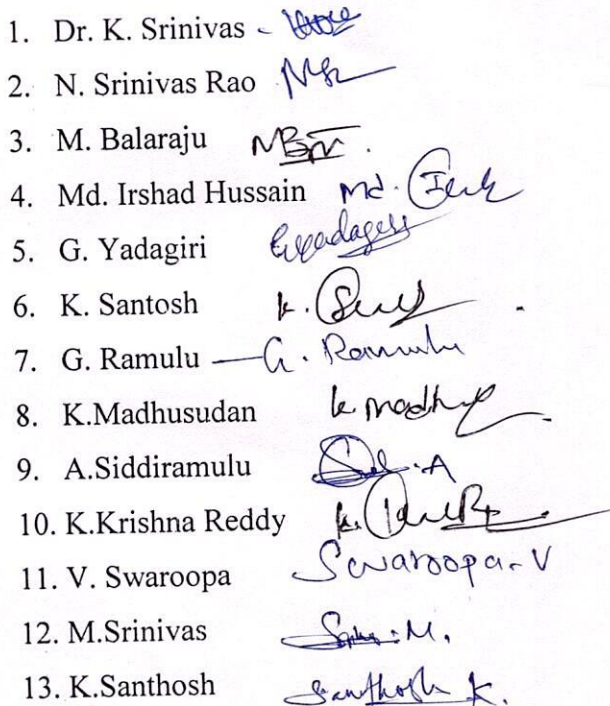 1. Dr. K. Srinivas -
2. N. Srinivas Rao
3. M. Balaraju
4. Md. Irshad Hussain Md.
5. G. Yadagiri Gyadageri
6. K. Santosh k.
7. G. Ramulu — G. Ramulu
8. K.Madhusudan k. madhu
9. A.Siddiramulu A
10. K.Krishna Reddy k.
11. V. Swaroopa Swaroopa. V
12. M.Srinivas M.
13. K.Santhosh Santhosh K.